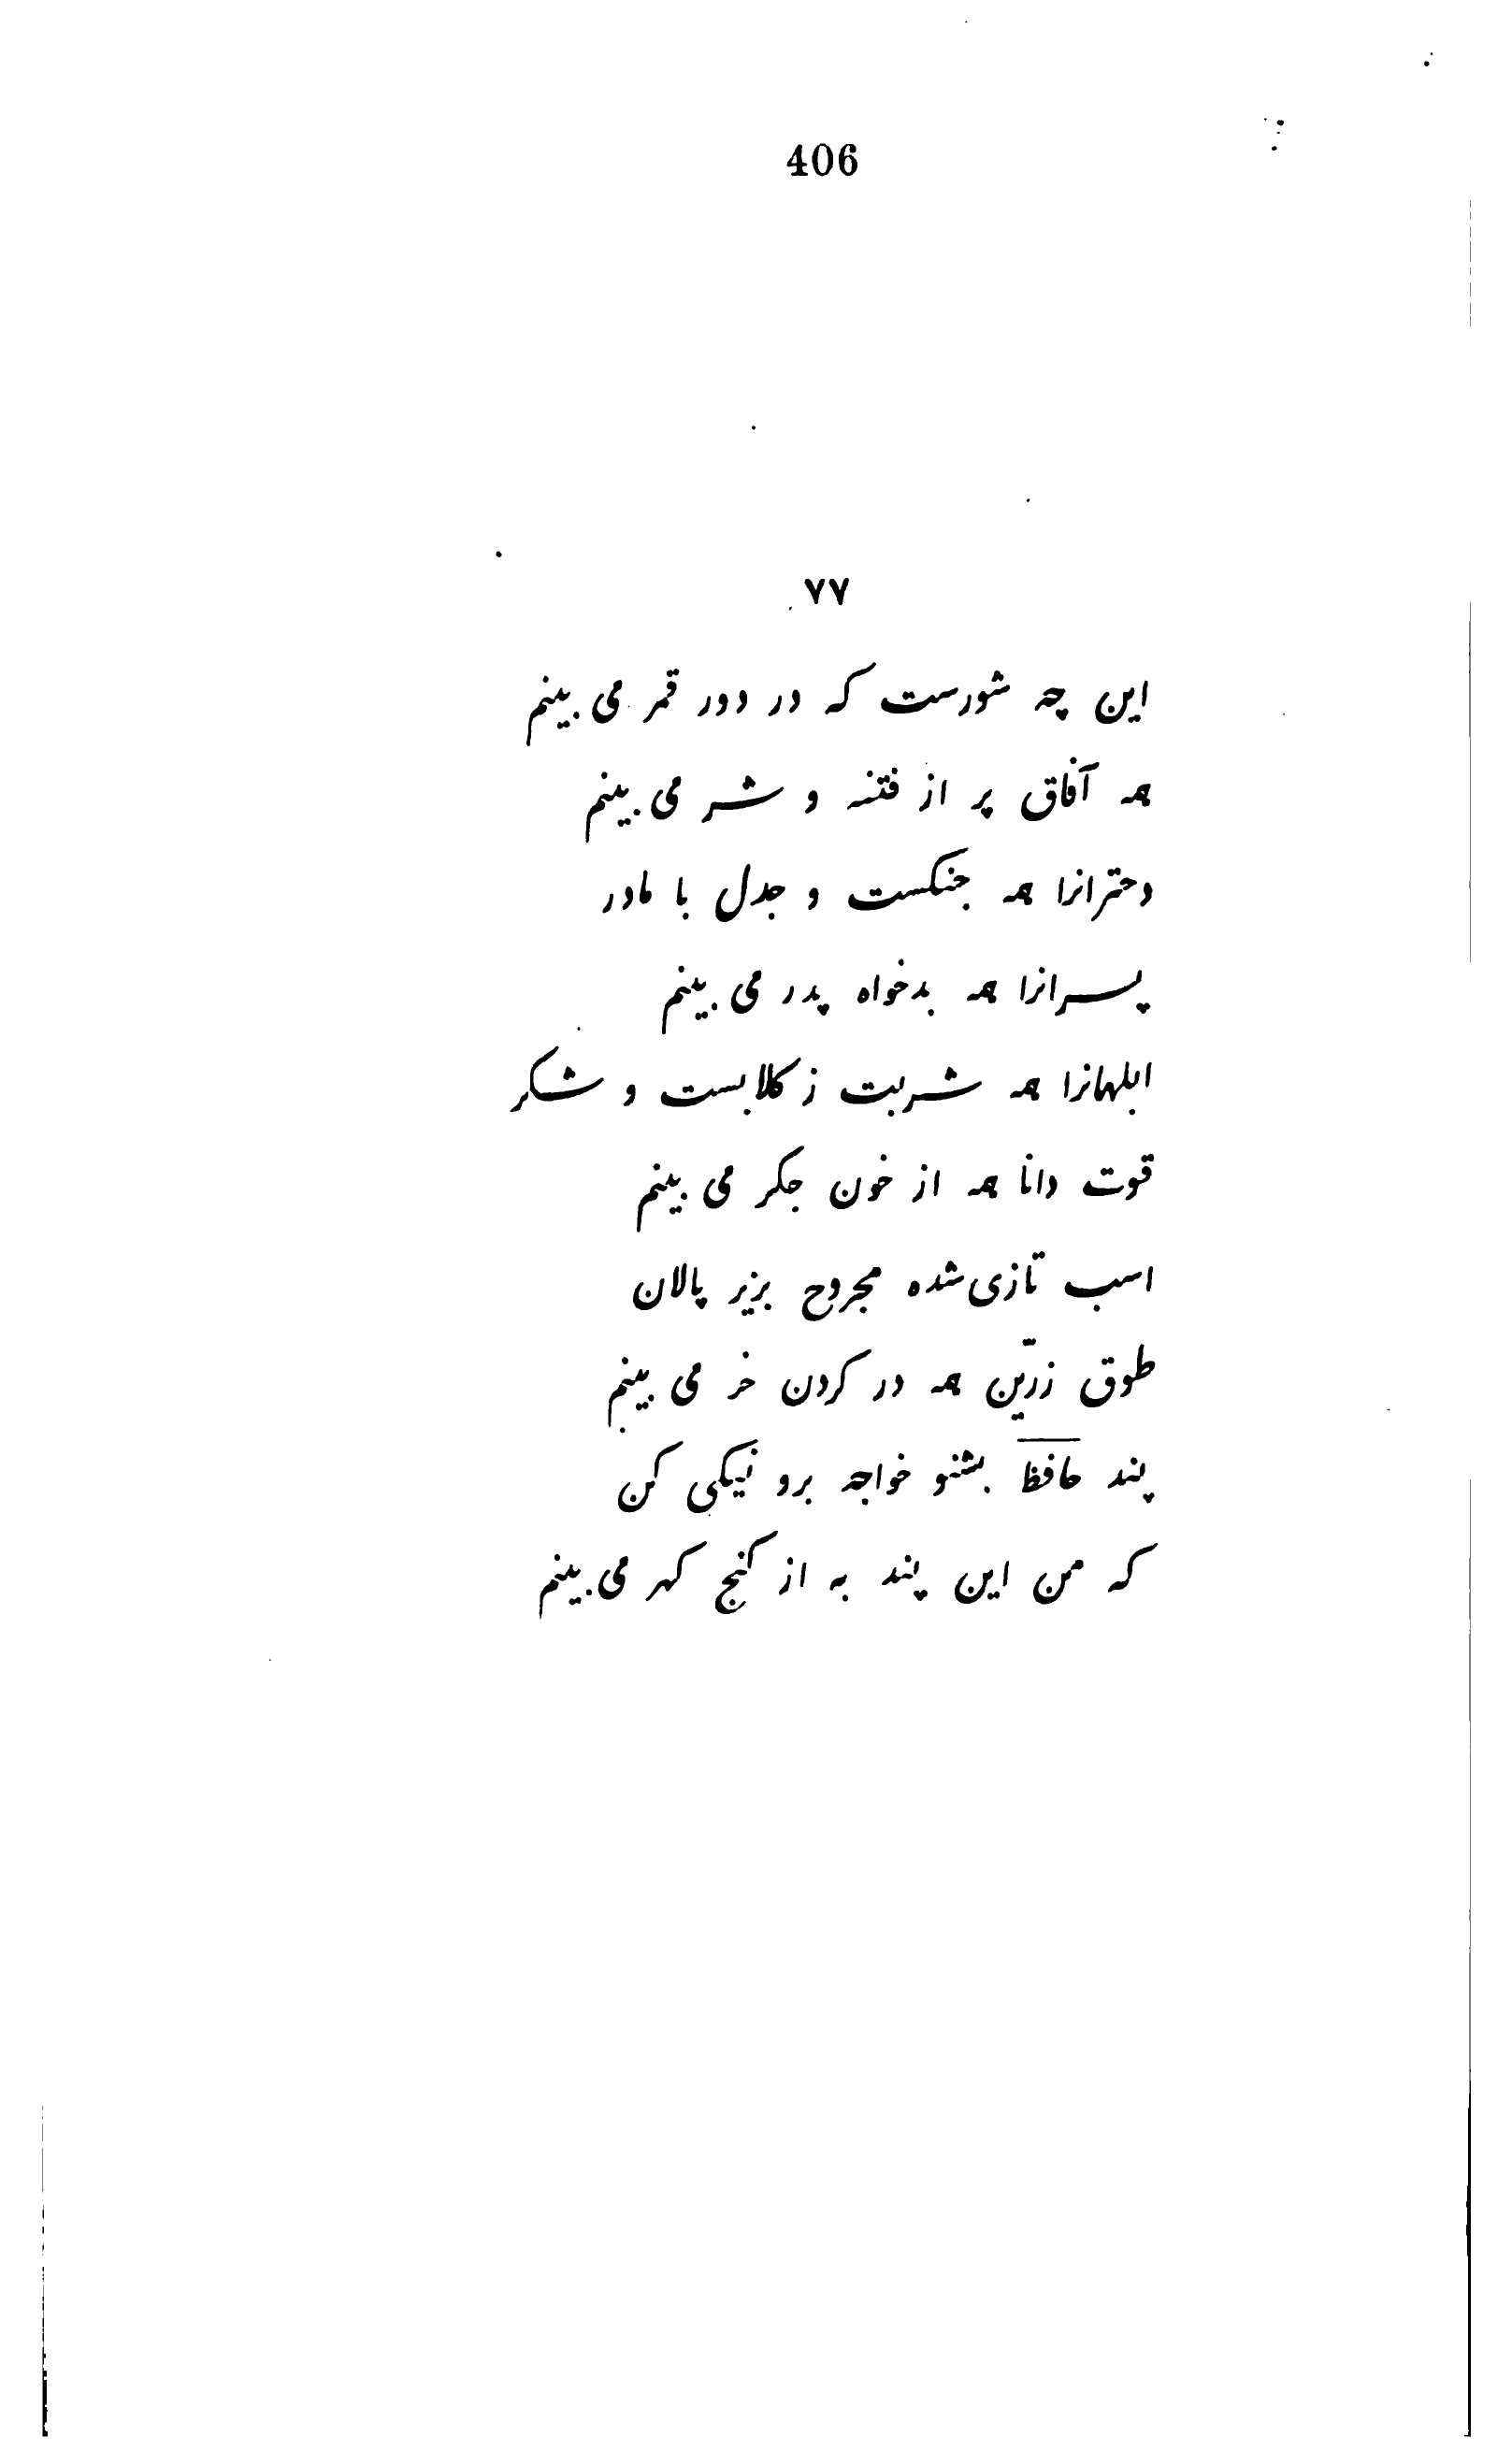 406
۷۷
این چه شورست که در دور قمر می بینم
همه آفاق پر از فتنه و شر می بینم
دخترانرا همه جنکست و جدل با مادر
پسرانرا همه بدخواه پدر می بینم
ابلهانرا همه شربت ز کلابست و شکر
قوت دانا همه از خون جکر می بینم
اسب تازی شده مجروح بزیر پالان
طوق زرّین همه در کردن خر می بینم
پند حافظ بشنو خواجه برو نیکی کن
که من این پند به از کنج کهر می بینم